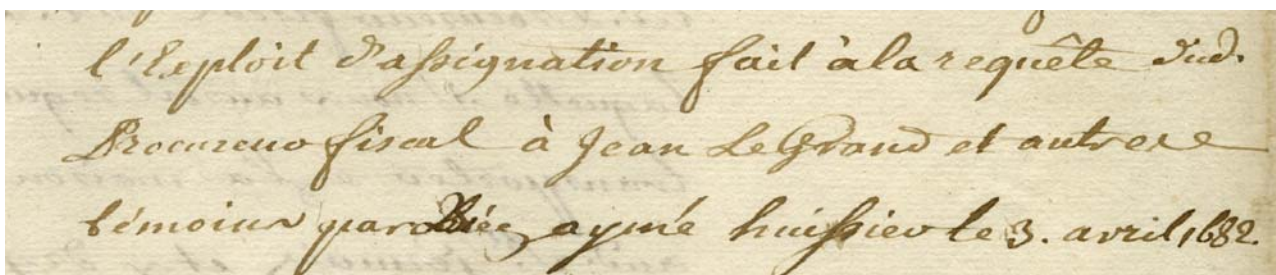 l'Exploit d'assignation fait à la requête dud.
Procureur fiscal à Jean LeGrand et autres
témoins par aymé huissier le 3. avril 1682.